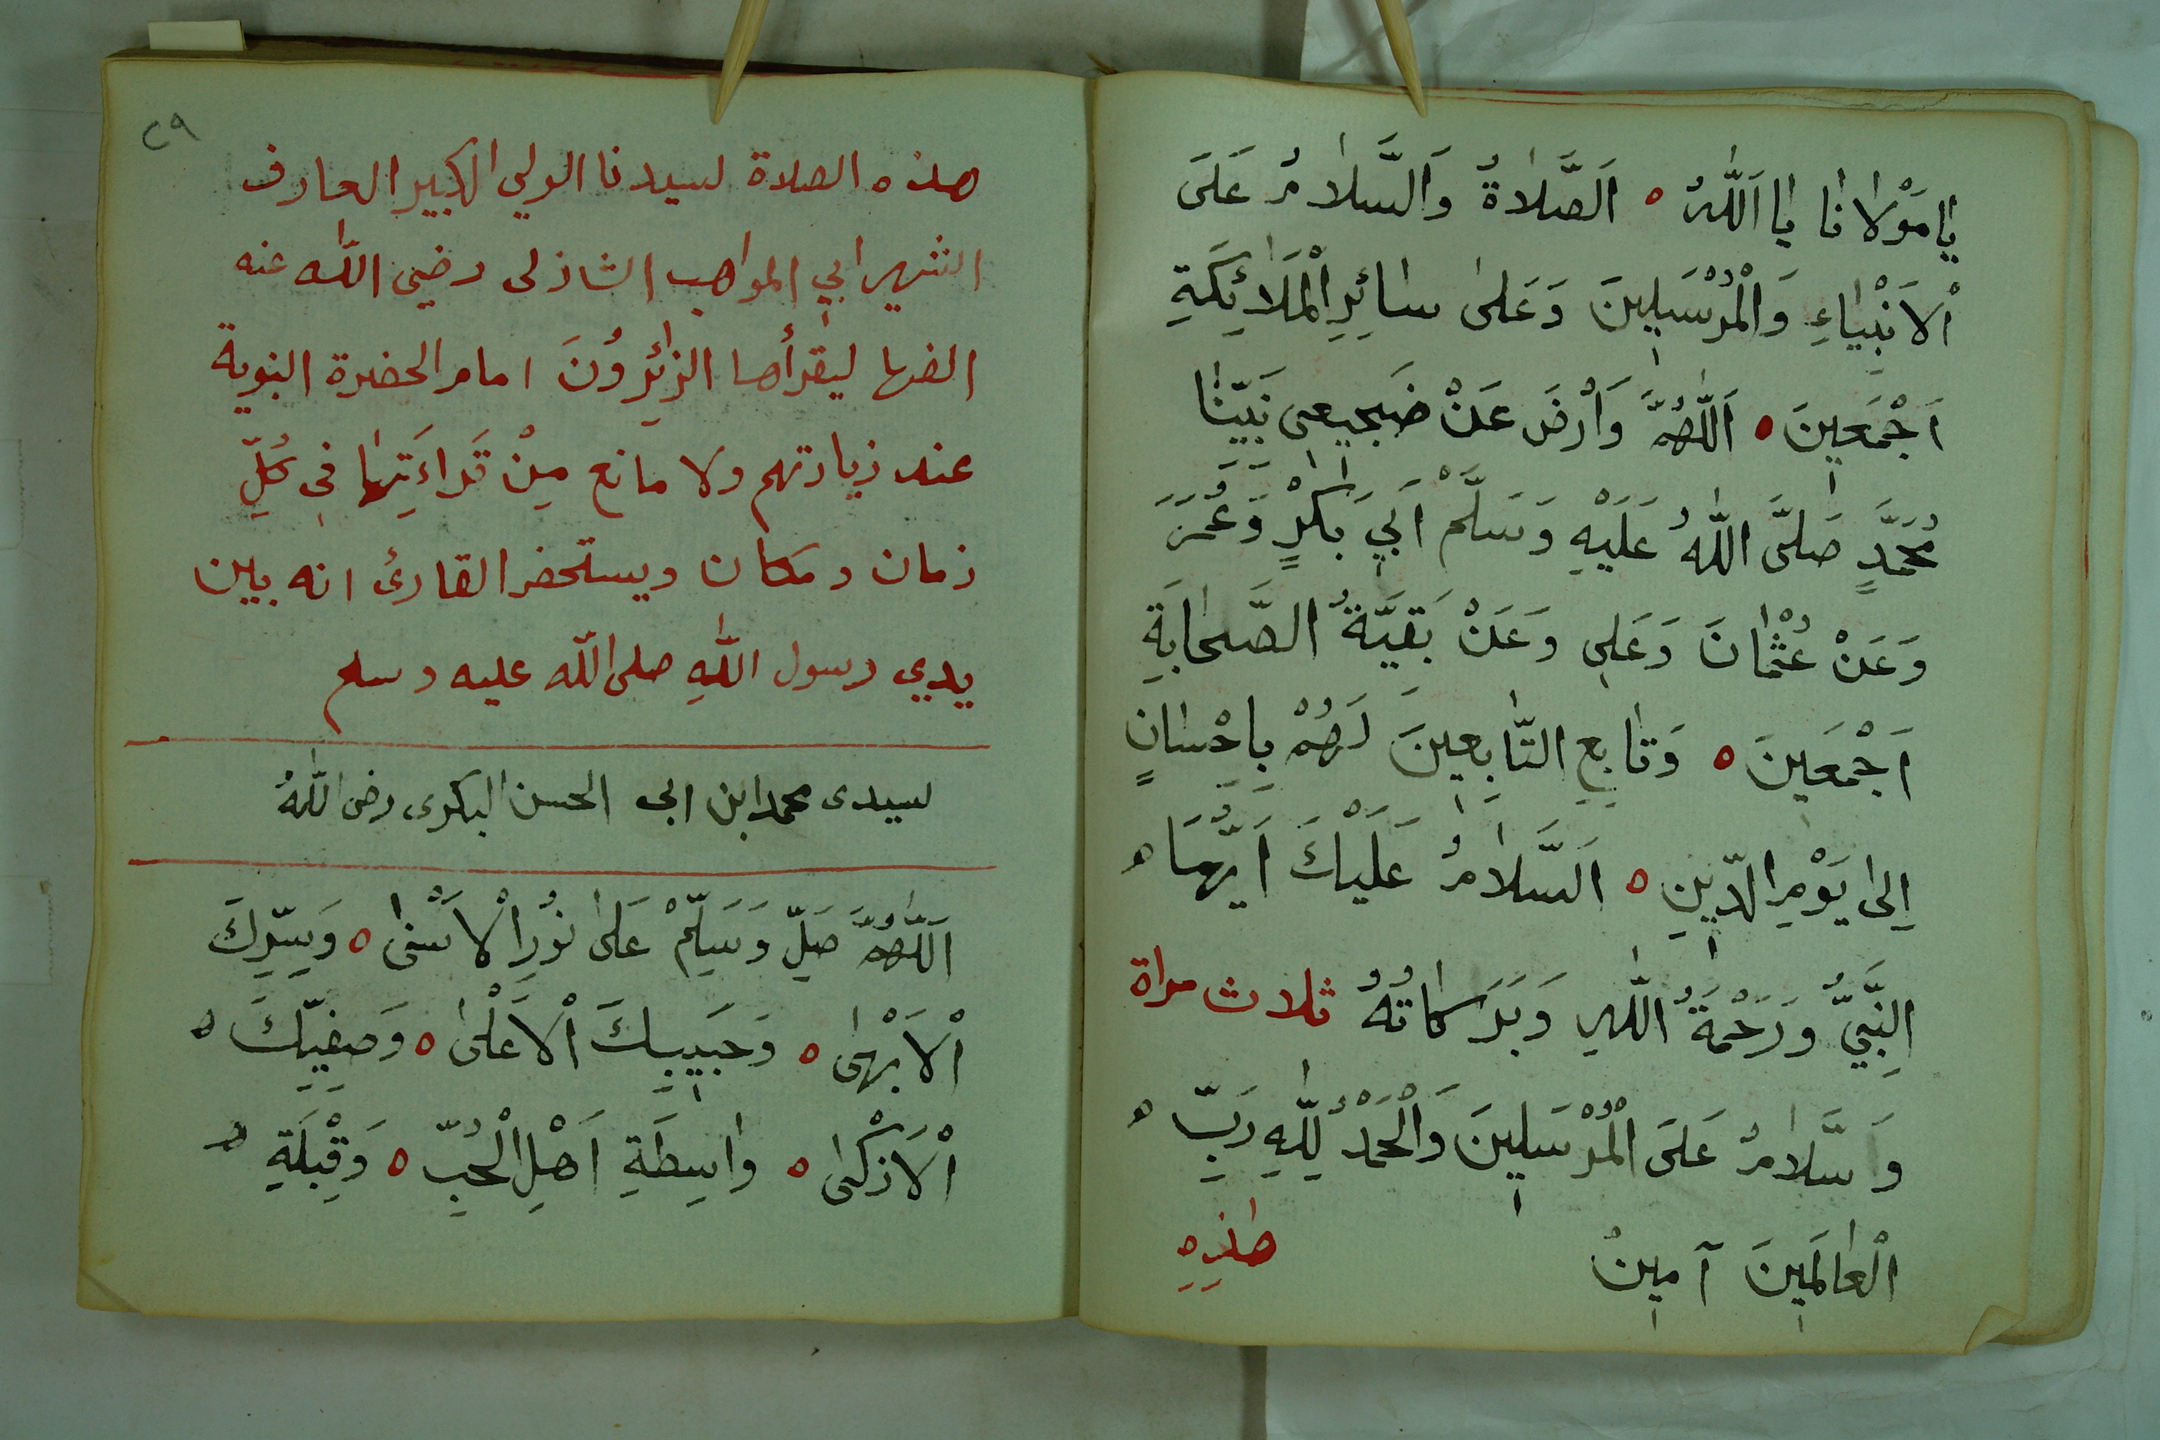 يَا مَوْلَانَا يَا اَللّٰهُ ۝ اَلصَّلَاةُ وَالسَّلَامُ عَلَى
الْاَنْبِيَاءِ وَالْمُرْسَلِينَ وَعَلٰى سَائِرِ الْمَلَائِكَةِ
اَجْمَعِينَ ۝ اَللّٰهُمَّ وَارْضَ عَنْ ضَجِيعَي نَبِيِّنَا
مُحَمَّدٍ صَلَّى اللّٰهُ عَلَيْهِ وَسَلَّمْ اَبِي بَكْرٍ وَعُمَرَ
وَعَنْ عُثْمَانَ وَعَلِي وَعَنْ بَقِيَّةُ الصَّحَابَةِ
اَجْمَعِينَ ۝ وَتَابِعِ التَّابِعِينَ لَهُمْ بِاِحْسَانٍ
اِلٰى يَوْمِ الدِّينِ ۝ اَلسَّلَامُ عَلَيْكَ اَيُّهَا ه
النَّبِيُّ وَرَحْمَةُ اللّٰهِ وَبَرَكَاتُهُ ثلاث مراة
وَسَّلَامُ عَلَى الْمُرْسَلِينَ وَالْحَمْدُ لِلّٰهِ رَبِّ ه
الْعَالَمِينَ آمِينْ
هٰذِهِ
٢٩
هذه الصلاة لسيدنا الولي الكبير العارف
الشهير ابي المواهب الشاذلى رضى اللّٰه عنه
الفها ليقرأها الزائِرُونَ امام الحضرة النبوية
عند زيارتهم ولا مانع مِنْ قَراءَتِهَا في كُلِّ
زمان ومكان ويستحضر القارئ انه بين
يدي رسول اللّٰهِ صلى اللّٰه عليه وسلم
لسيدى محمد ابن ابى الحسن البكرى رضى اللّٰهُ
اَللّٰهُمَّ صَلِّ وَسَلِّمْ عَلٰى نُورِ الْاَسْنٰى ۝ وَسِرِّكَ
الْاَبْهٰى ۝ وَحَبِيبِكَ الْاَعْلٰى ۝ وَصَفِيِّكَ ه
الْاَزْكٰى ۝ وَاسِطَةِ اَهْلِ الْحُبِّ ۝ وَقِبْلَةِ ه